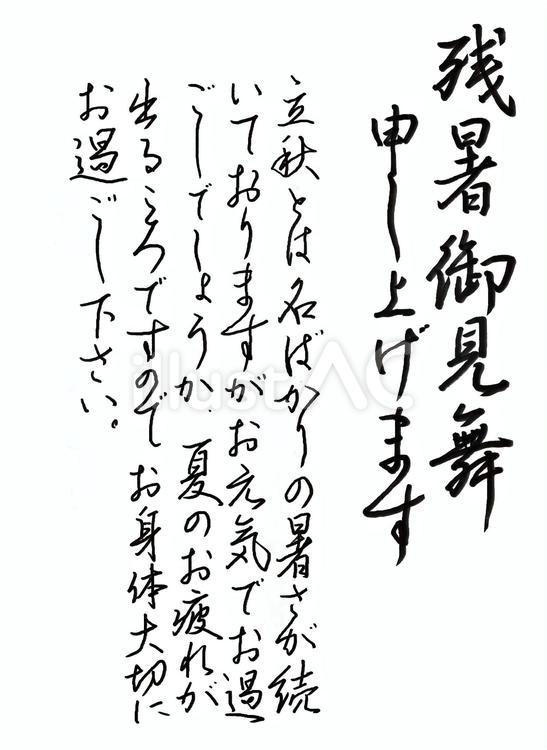 残暑御見舞
申し上げます
立秋とは名ばかりの暑さが続
いておりますがお元気でお過
ごしでしょうか。夏のお疲れが
出るころですのでお身体大切に
お過ごし下さい。
illustAC